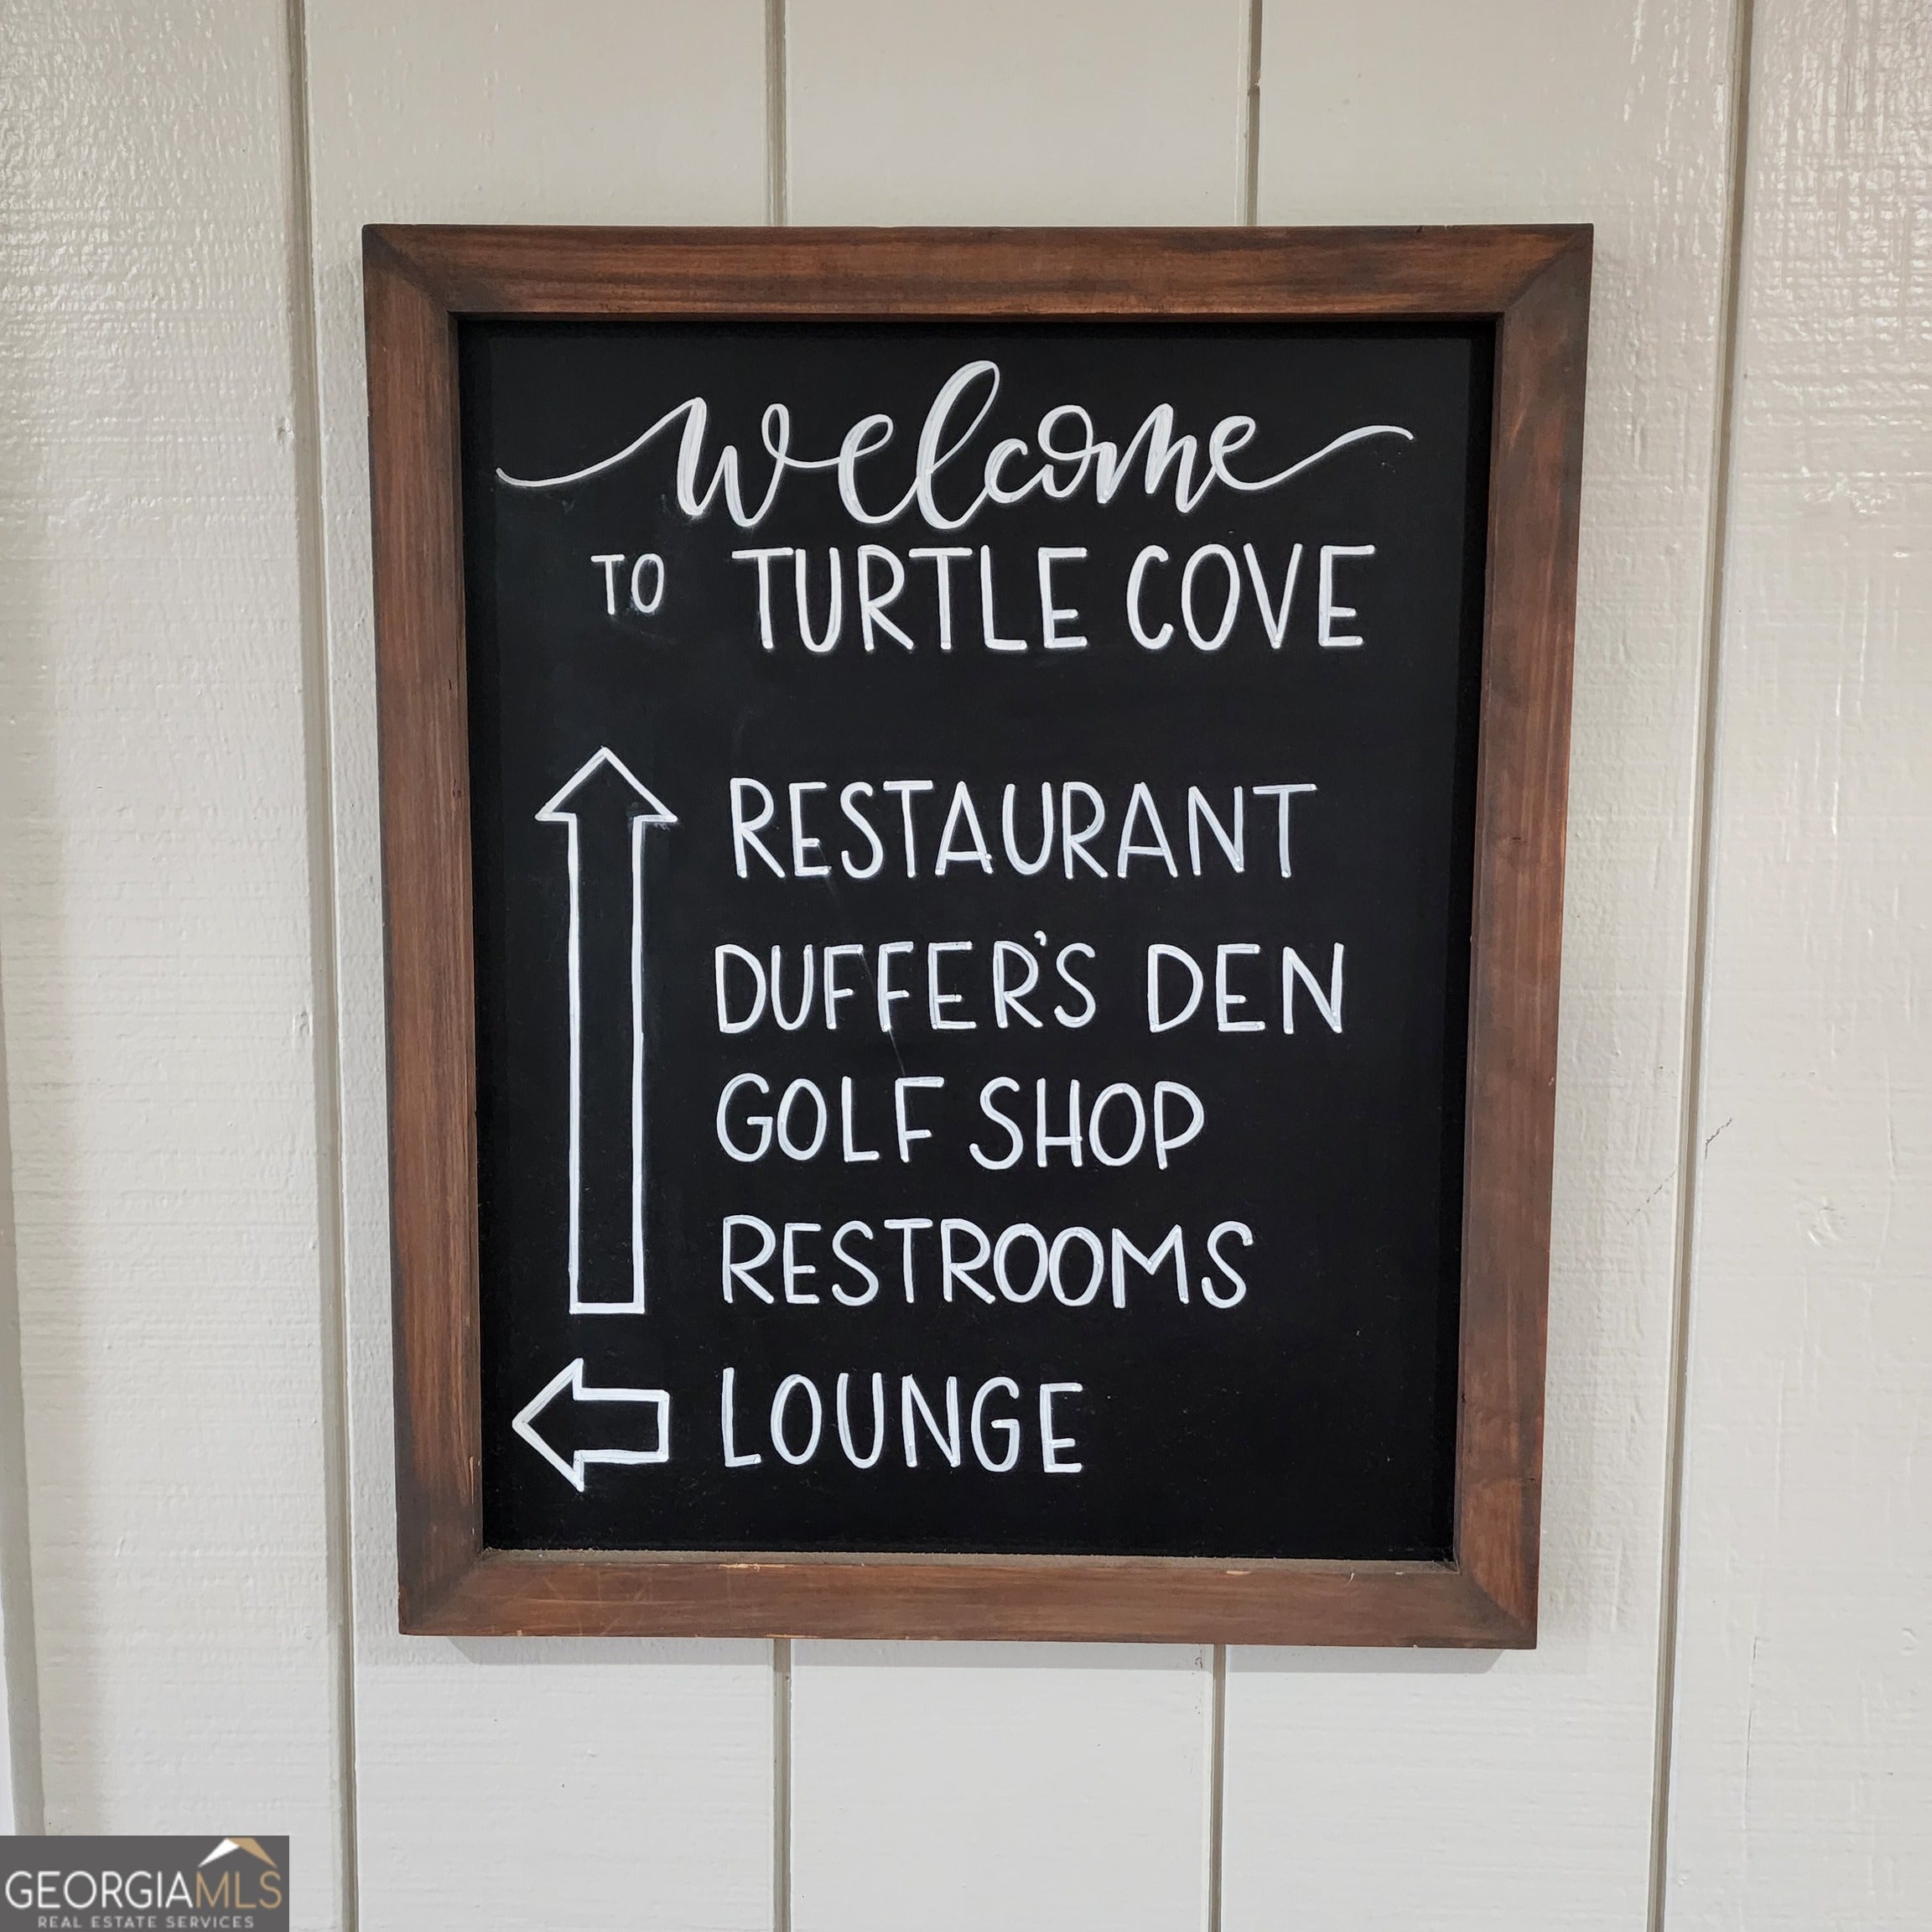 welcome
TO TURTLE COVE
RESTAURANT
DUFFER'S DEN
GOLF SHOP
RESTROOMS
LOUNGE
GEORGIAMLS
REAL ESTATE SERVICES